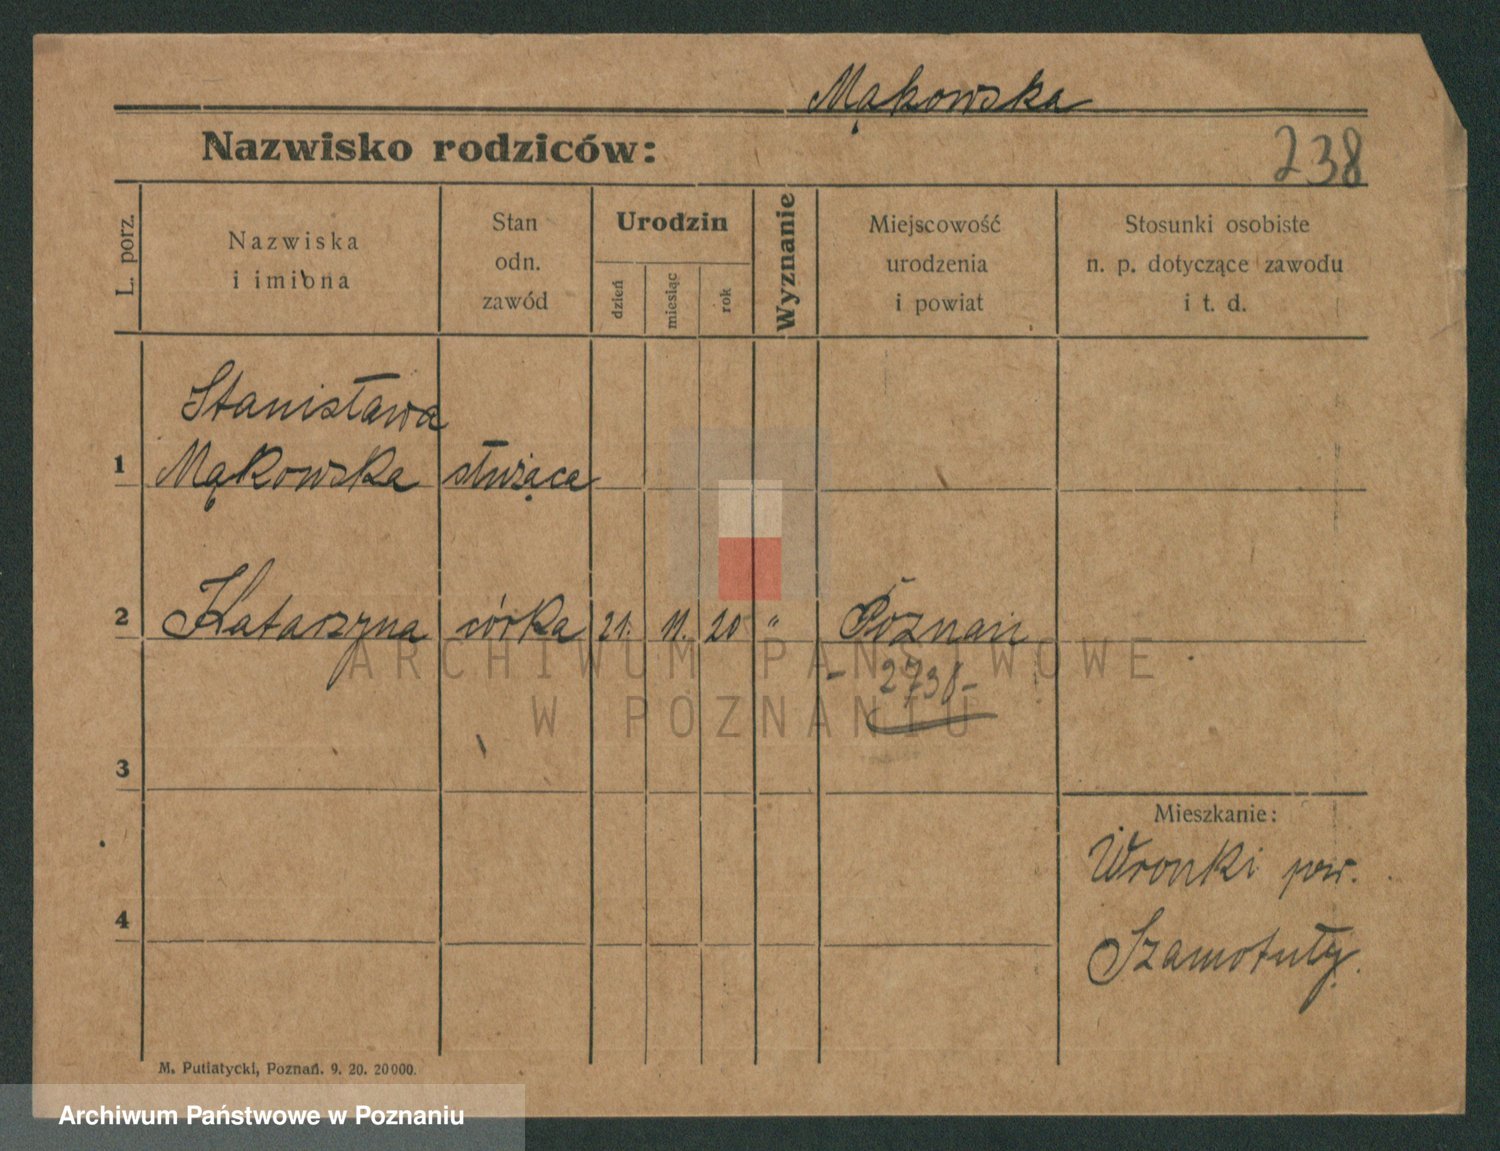 Mąkowska
Nazwisko rodziców:
238
L. porz.
Nazwiska
i imiona
Stan
odn.
zawód
Urodzin
dzień
miesiąc
rok
Wyznanie
Miejscowość
urodzenia
i powiat
Stosunki osobiste
n. p. dotyczące zawodu
i t. d.
Stanisława
1 Mąkowska służąca
2 Katarzyna córka 21. 11. 20 " Poznań
ARCHIWUM PAŃSTWOWE
- 2738 -
W POZNANIU
3
Mieszkanie:
Wronki pow.
4
Szamotuły.
M. Putiatycki, Poznań. 9. 20. 20000.
Archiwum Państwowe w Poznaniu